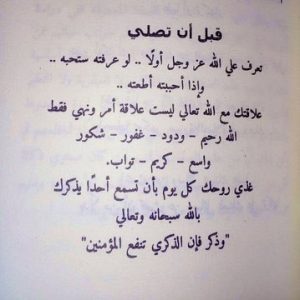 قبل أن تصلي
تعرف علي الله عز وجل أولًا .. لو عرفته ستحبه ..
وإذا أحببته أطعته ..
علاقتك مع الله تعالي ليست علاقة أمر ونهي فقط
الله رحيم - ودود - غفور - شكور
واسع - كريم - تواب.
غذي روحك كل يوم بأن تسمع أحدًا يذكرك
بالله سبحانه وتعالي
"وذكر فإن الذكري تنفع المؤمنين"